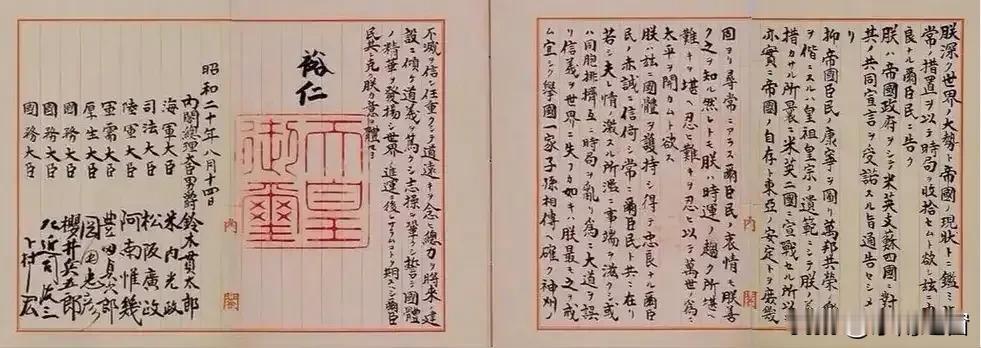 朕深ク世界ノ大勢ト帝國ノ現狀トニ鑑ミ
常ノ措置ヲ以テ時局ヲ收拾セムト欲シ茲ニ
良ナル爾臣民ニ告ク
朕ハ帝國政府ヲシテ米英支蘇四國ニ對
其ノ共同宣言ヲ受諾スル旨通告セシメ
リ
抑帝國臣民ノ康寧ヲ圖リ萬邦共榮ノ
ヲ偕ニスルハ皇祖皇宗ノ遺範ニシテ朕ノ
措カサル所曩ニ米英二國ニ宣戰セル所以
亦實ニ帝國ノ自存ト東亞ノ安定トヲ庶幾
內閣
固ヨリ尋常ニアラス爾臣民ノ衷情モ朕善
ク之ヲ知ル然レトモ朕ハ時運ノ趨ク所堪ヘ
難キヲ堪ヘ忍ヒ難キヲ忍ヒ以テ萬世ノ為ニ
太平ヲ開カムト欲ス
朕ハ茲ニ國體ヲ護持シ得テ忠良ナル爾臣
民ノ赤誠ニ信倚シ常ニ爾臣民ト共ニ在リ
若シ夫レ情ノ激スル所濫ニ事端ヲ滋クシ或
ハ同胞排擠互ニ時局ヲ亂リ為ニ大道ヲ誤
リ信義ヲ世界ニ失フカ如キハ朕最モ之ヲ戒
ム宜シク擧國一家子孫相傳ヘ確ク神州ノ
不滅ヲ信シ任重クシテ道遠キヲ念ヒ總力ヲ將來ノ建
設ニ傾ケ道義ヲ篤クシ志操ヲ鞏クシ誓テ國體
ノ精華ヲ發揚シ世界ノ進運ニ後レサラムコトヲ期スヘシ爾臣
民其レ克ク朕カ意ヲ體セヨ
裕仁
天皇御璽
內閣
昭和二十年八月十四日
內閣總理大臣男爵 鈴木貫太郎
海軍大臣 米內光政
司法大臣 松阪廣政
陸軍大臣 阿南惟幾
軍需大臣 豊田貞次郎
厚生大臣 岡田忠彦
國務大臣 櫻井兵五郎
國務大臣
國務大臣 下村宏